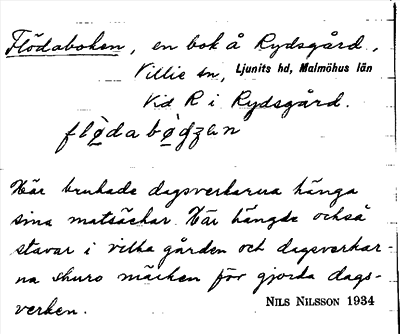 Flödaboken, en bok å Rydsgård,
Villie sn, Ljunits hd, Malmöhus län
Vid R i Rydsgård.
flødabøgzen
Här brukade dagsverkarna hänga
sina matsäckar. Här hängde också
stavar i vilka gården och dagsverkar-
na skuro märken för gjorda dags-
verken. NILS NILSSON 1934